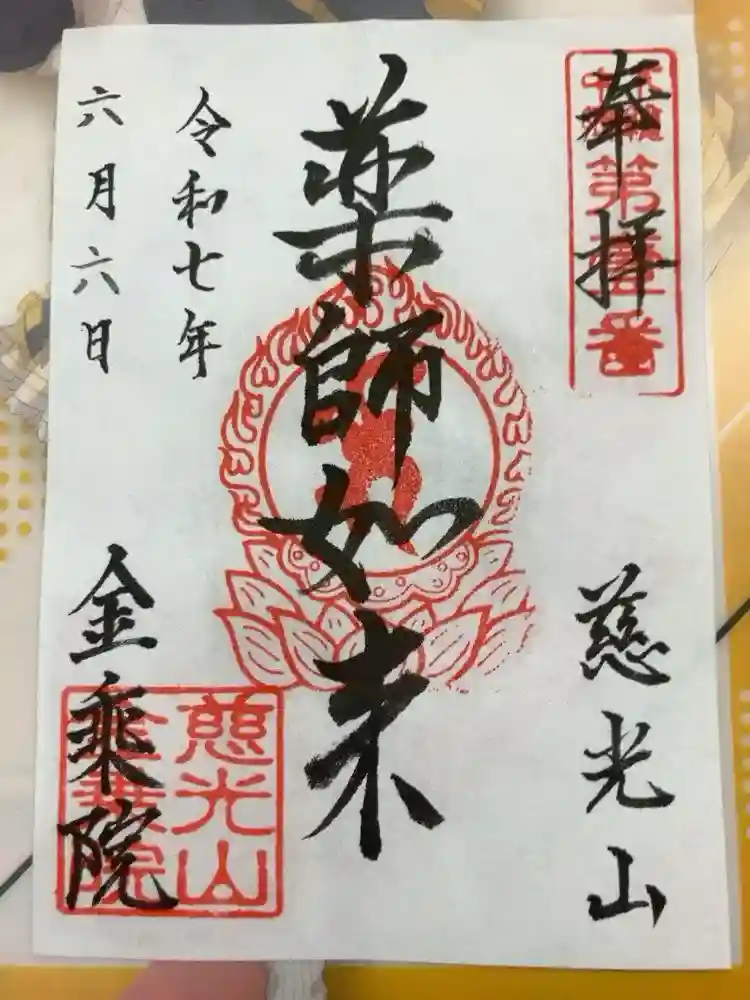 奉拝
慈光山
薬師如来
令和七年
六月六日
金乗院
慈光山
金乗院